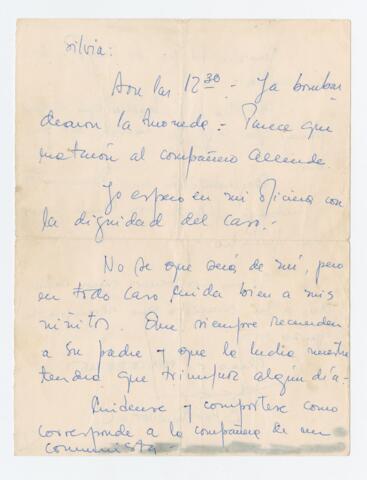 Silvia:
Son las 12 30.- Ya bombar
dearon la Moneda.- Parece que
mataron al compañero Allende.
Yo espero en mi oficina con
la dignidad del caso.-
No se que será de mí, pero
en todo caso, cuida bien a mis
niñitos. Que siempre recuerden
a su padre y que la lucha nuestra
tendrá que triunfar algún día.-
Cuidense y compórtese como
corresponde a la compañera de un
comunista.-